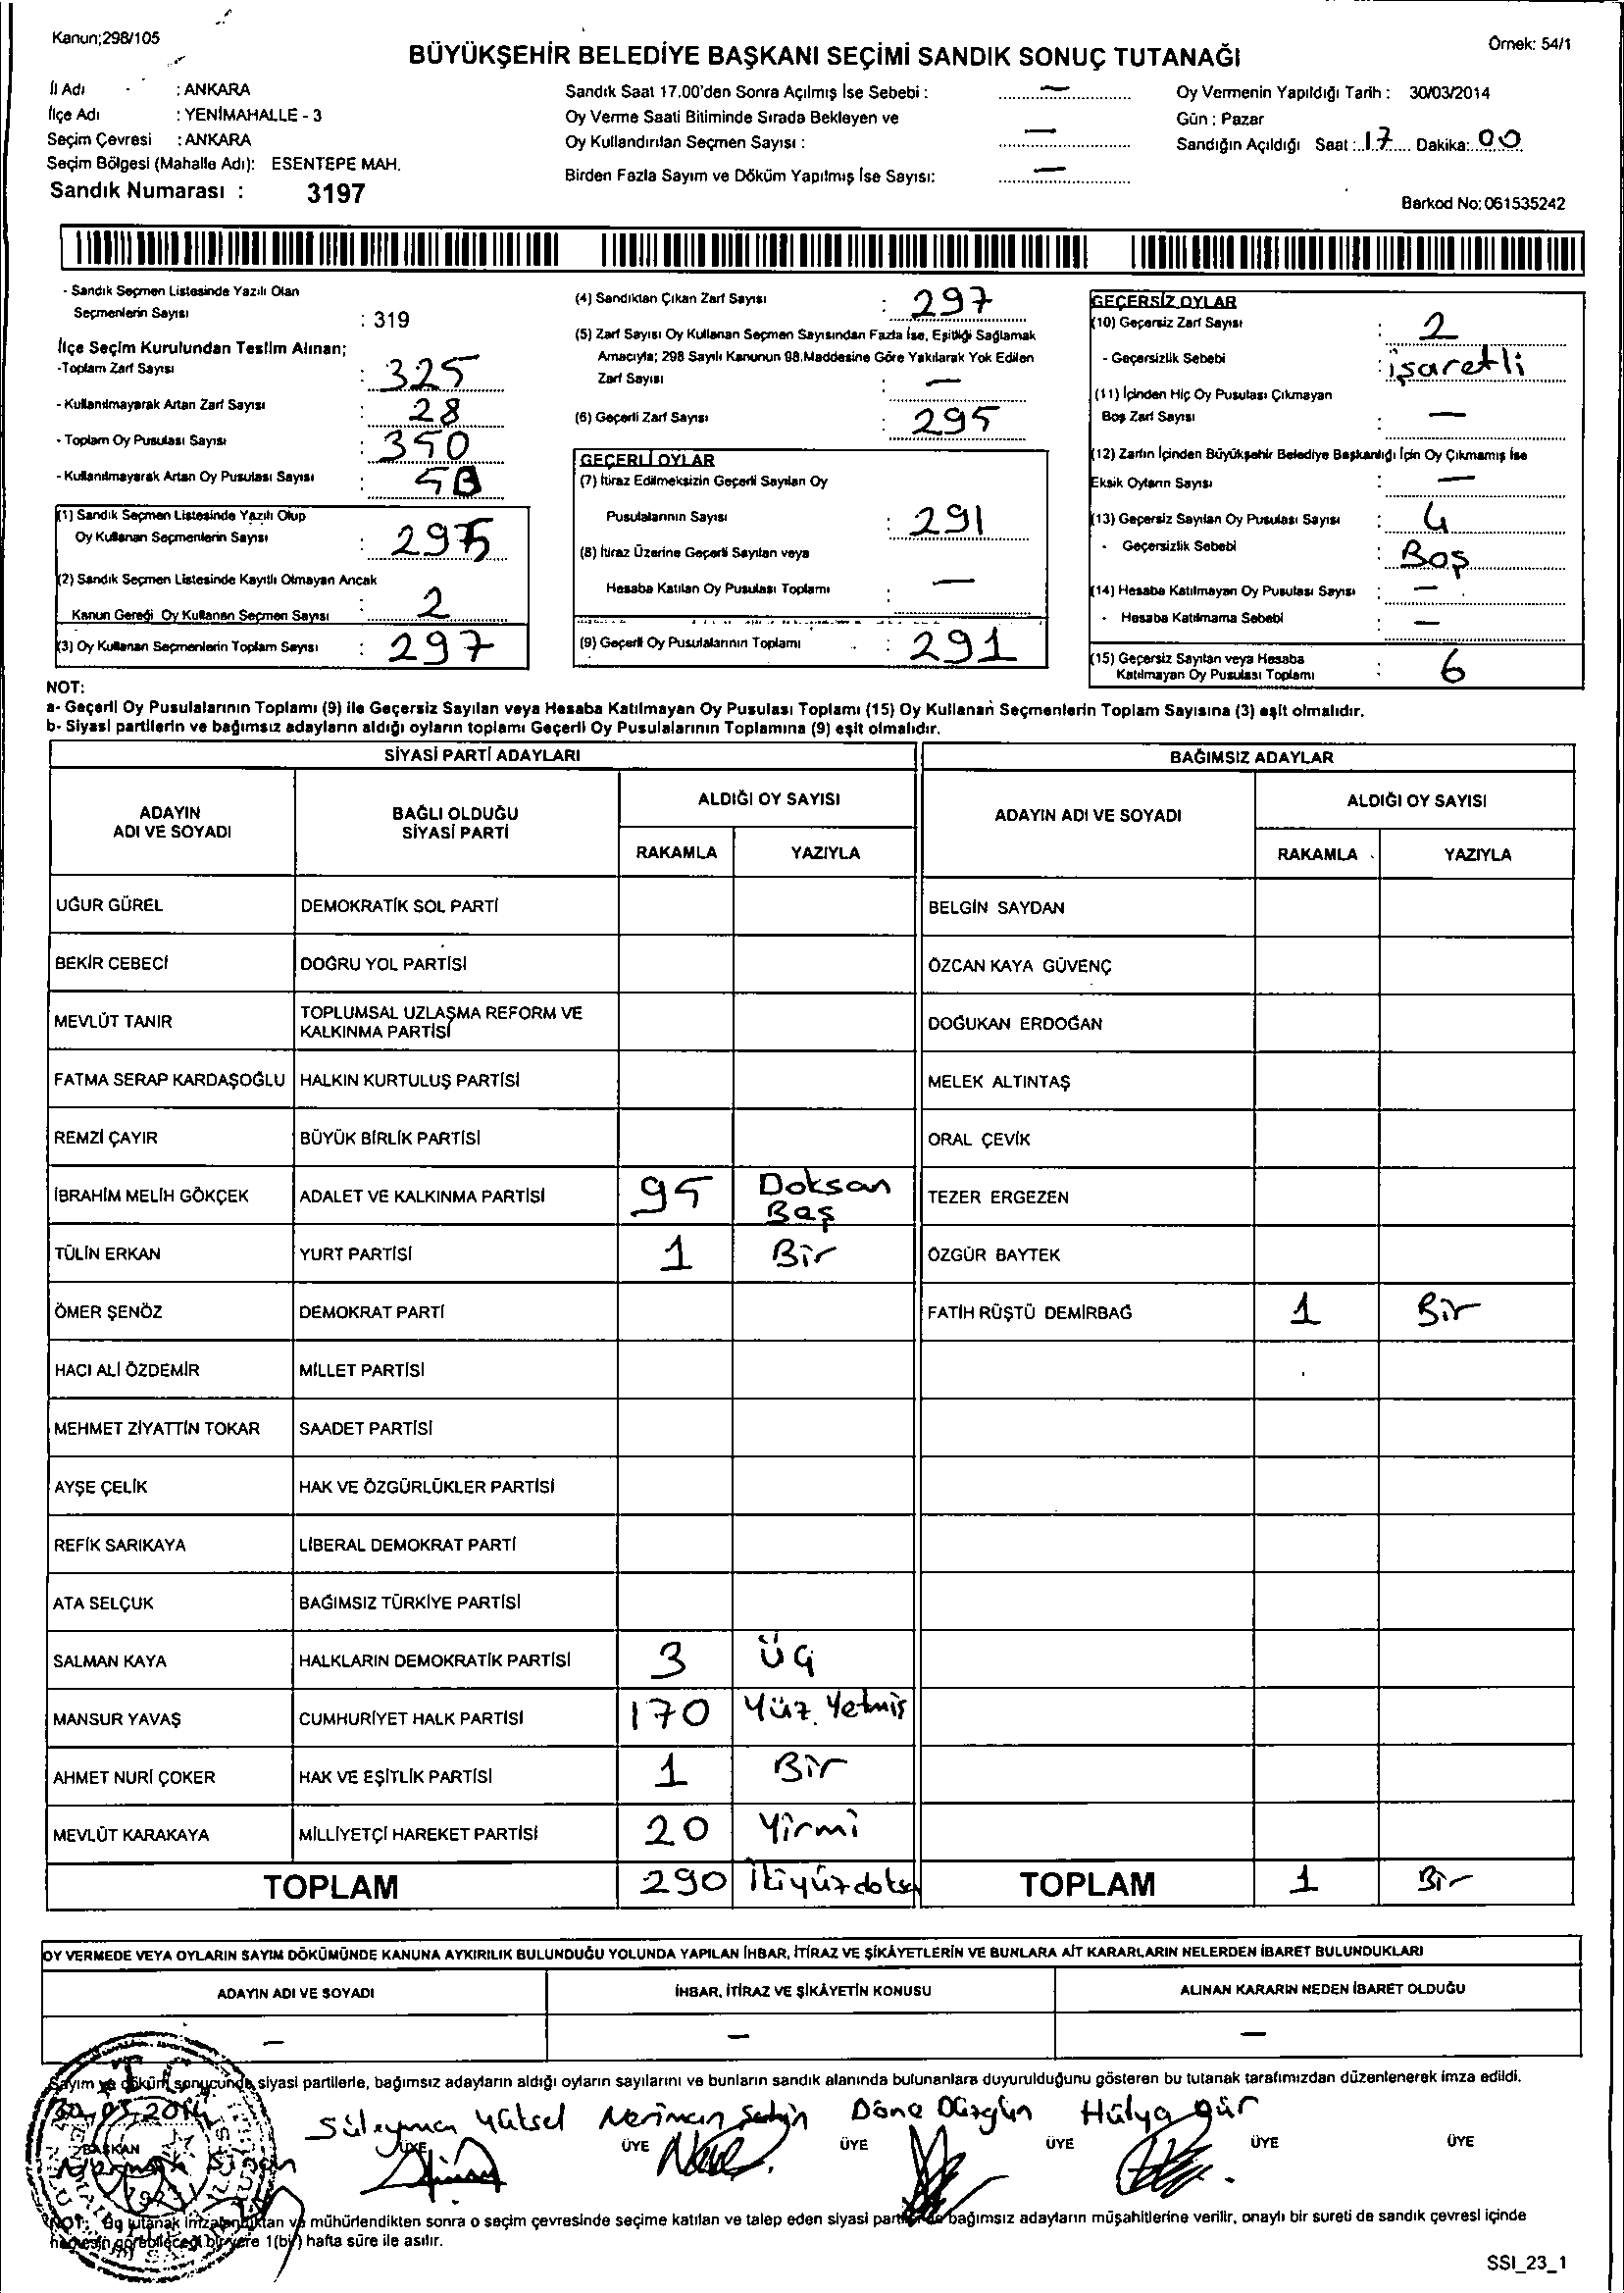 Kanun;298/105
Örnek: 54/1
BÜYÜKŞEHİR BELEDİYE BAŞKANI SEÇİMİ SANDIK SONUÇ TUTANAĞI
İl Adı : ANKARA
İlçe Adı : YENİMAHALLE - 3
Seçim Çevresi : ANKARA
Seçim Bölgesi (Mahalle Adı): ESENTEPE MAH.
Sandık Numarası : 3197
Sandık Saat 17.00'den Sonra Açılmış İse Sebebi : —
Oy Verme Saati Bitiminde Sırada Bekleyen ve
Oy Kullandırılan Seçmen Sayısı : —
Birden Fazla Sayım ve Döküm Yapılmış İse Sayısı: —
Oy Vermenin Yapıldığı Tarih : 30/03/2014
Gün : Pazar
Sandığın Açıldığı Saat : 17 Dakika: 00
Barkod No: 061535242
- Sandık Seçmen Listesinde Yazılı Olan
Seçmenlerin Sayısı : 319
İlçe Seçim Kurulundan Teslim Alınan;
-Toplam Zarf Sayısı : 325
- Kullanılmayarak Artan Zarf Sayısı : 28
- Toplam Oy Pusulası Sayısı : 350
- Kullanılmayarak Artan Oy Pusulası Sayısı :
(1) Sandık Seçmen Listesinde Yazılı Olup
Oy Kullanan Seçmenlerin Sayısı : 295
(2) Sandık Seçmen Listesinde Kayıtlı Olmayan Ancak
Kanun Gereği Oy Kullanan Seçmen Sayısı : 2
(3) Oy Kullanan Seçmenlerin Toplam Sayısı : 297
(4) Sandıktan Çıkan Zarf Sayısı : 297
(5) Zarf Sayısı Oy Kullanan Seçmen Sayısından Fazla İse, Eşitliği Sağlamak
Amacıyla; 298 Sayılı Kanunun 98.Maddesine Göre Yakılarak Yok Edilen
Zarf Sayısı : —
(6) Geçerli Zarf Sayısı : 295
GEÇERLİ OYLAR
(7) İtiraz Edilmeksizin Geçerli Sayılan Oy
Pusulalarının Sayısı : 291
(8) İtiraz Üzerine Geçerli Sayılan veya
Hesaba Katılan Oy Pusulası Toplamı : —
(9) Geçerli Oy Pusulalarının Toplamı : 291
GEÇERSİZ OYLAR
(10) Geçersiz Zarf Sayısı : 2
- Geçersizlik Sebebi : işaretli
(11) İçinden Hiç Oy Pusulası Çıkmayan
Boş Zarf Sayısı : —
(12) Zarfın İçinden Büyükşehir Belediye Başkanlığı İçin Oy Çıkmamış İse
Eksik Oyların Sayısı : —
(13) Geçersiz Sayılan Oy Pusulası Sayısı : 4
- Geçersizlik Sebebi : Boş
(14) Hesaba Katılmayan Oy Pusulası Sayısı : —
- Hesaba Katılmama Sebebi : —
(15) Geçersiz Sayılan veya Hesaba
Katılmayan Oy Pusulası Toplamı : 6
NOT:
a- Geçerli Oy Pusulalarının Toplamı (9) ile Geçersiz Sayılan veya Hesaba Katılmayan Oy Pusulası Toplamı (15) Oy Kullanan Seçmenlerin Toplam Sayısına (3) eşit olmalıdır.
b- Siyasi partilerin ve bağımsız adayların aldığı oyların toplamı Geçerli Oy Pusulalarının Toplamına (9) eşit olmalıdır.
SİYASİ PARTİ ADAYLARI
BAĞIMSIZ ADAYLAR
ADAYIN ADI VE SOYADI
BAĞLI OLDUĞU SİYASİ PARTİ
ALDIĞI OY SAYISI
RAKAMLA YAZIYLA
ADAYIN ADI VE SOYADI
ALDIĞI OY SAYISI
RAKAMLA YAZIYLA
UĞUR GÜREL DEMOKRATİK SOL PARTİ BELGİN SAYDAN
BEKİR CEBECİ DOĞRU YOL PARTİSİ ÖZCAN KAYA GÜVENÇ
MEVLÜT TANIR TOPLUMSAL UZLAŞMA REFORM VE KALKINMA PARTİSİ DOĞUKAN ERDOĞAN
FATMA SERAP KARDAŞOĞLU HALKIN KURTULUŞ PARTİSİ MELEK ALTINTAŞ
REMZİ ÇAYIR BÜYÜK BİRLİK PARTİSİ ORAL ÇEVİK
İBRAHİM MELİH GÖKÇEK ADALET VE KALKINMA PARTİSİ 95 Doksan Baş TEZER ERGEZEN
TÜLİN ERKAN YURT PARTİSİ 1 Bir ÖZGÜR BAYTEK
ÖMER ŞENÖZ DEMOKRAT PARTİ FATİH RÜŞTÜ DEMİRBAĞ 1 Bir
HACI ALİ ÖZDEMİR MİLLET PARTİSİ
MEHMET ZİYATTİN TOKAR SAADET PARTİSİ
AYŞE ÇELİK HAK VE ÖZGÜRLÜKLER PARTİSİ
REFİK SARIKAYA LİBERAL DEMOKRAT PARTİ
ATA SELÇUK BAĞIMSIZ TÜRKİYE PARTİSİ
SALMAN KAYA HALKLARIN DEMOKRATİK PARTİSİ 3 Üç
MANSUR YAVAŞ CUMHURİYET HALK PARTİSİ 170 Yüz Yetmiş
AHMET NURİ ÇOKER HAK VE EŞİTLİK PARTİSİ 1 Bir
MEVLÜT KARAKAYA MİLLİYETÇİ HAREKET PARTİSİ 20 Yirmi
TOPLAM 290 İkiyüzdoksa TOPLAM 1 Bir
OY VERMEDE VEYA OYLARIN SAYIM DÖKÜMÜNDE KANUNA AYKIRILIK BULUNDUĞU YOLUNDA YAPILAN İHBAR, İTİRAZ VE ŞİKÂYETLERİN VE BUNLARA AİT KARARLARIN NELERDEN İBARET BULUNDUKLARI
ADAYIN ADI VE SOYADI İHBAR, İTİRAZ VE ŞİKÂYETİN KONUSU ALINAN KARARIN NEDEN İBARET OLDUĞU
— — —
Sayım ve döküm sonucunda siyasi partilerle, bağımsız adayların aldığı oyların sayılarını ve bunların sandık alanında bulunanlara duyurulduğunu gösteren bu tutanak tarafımızdan düzenlenerek imza edildi.
30.03.2014
Süleyman Yüksel Neriman Döne Düzgün Hülya Gür
BAŞKAN ÜYE ÜYE ÜYE ÜYE ÜYE ÜYE
NOT: Bu tutanak imzalandıktan ve mühürlendikten sonra o seçim çevresinde seçime katılan ve talep eden siyasi parti ve bağımsız adayların müşahitlerine verilir, onaylı bir sureti de sandık çevresi içinde
herkesin görebileceği bir yere 1(bir) hafta süre ile asılır.
SSI_23_1